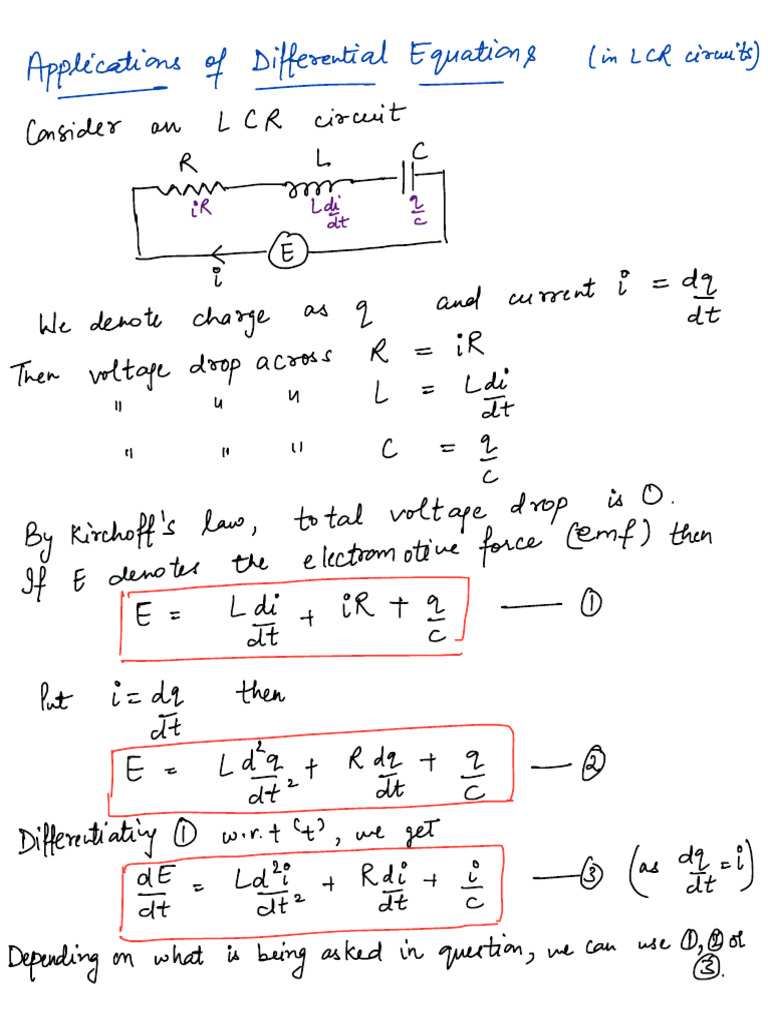 Applications of Differential Equations (in LCR circuits)
Consider an LCR circuit
R L C
iR Ldi/dt q/c
E
i
We denote charge as q and current i = dq/dt
Then voltage drop across R = iR
" " " L = Ldi/dt
" " " C = q/c
By Kirchoff's law, total voltage drop is 0.
If E denotes the electromotive force (emf) then
E = Ldi/dt + iR + q/c — ①
Put i = dq/dt then
E = Ld²q/dt² + Rdq/dt + q/c — ②
Differentiating ① w.r.t 't', we get
dE/dt = Ld²i/dt² + Rdi/dt + i/c — ③ (as dq/dt = i)
Depending on what is being asked in question, we can use ①, ② or
③.